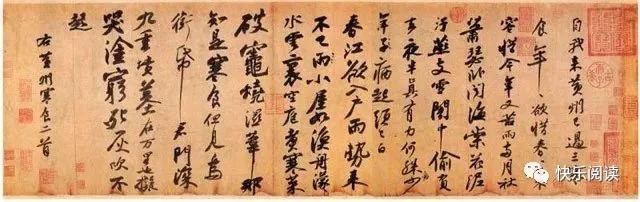 自我来黄州已過三寒
食年〻欲惜春〻去不
容惜今年又苦雨兩月秋
蕭瑟卧聞海棠花泥
汙燕支雪闇中偷負
去夜半真有力何殊少
年子病起頭已白
春江欲入戶雨勢来
不已小屋如漁舟濛〻
水雲裏空庖煮寒菜
破竈燒濕葦那
知是寒食但見烏
銜帋君門深
九重墳墓在万里也擬
哭塗窮死灰吹不
起
右黃州寒食二首
快乐阅读